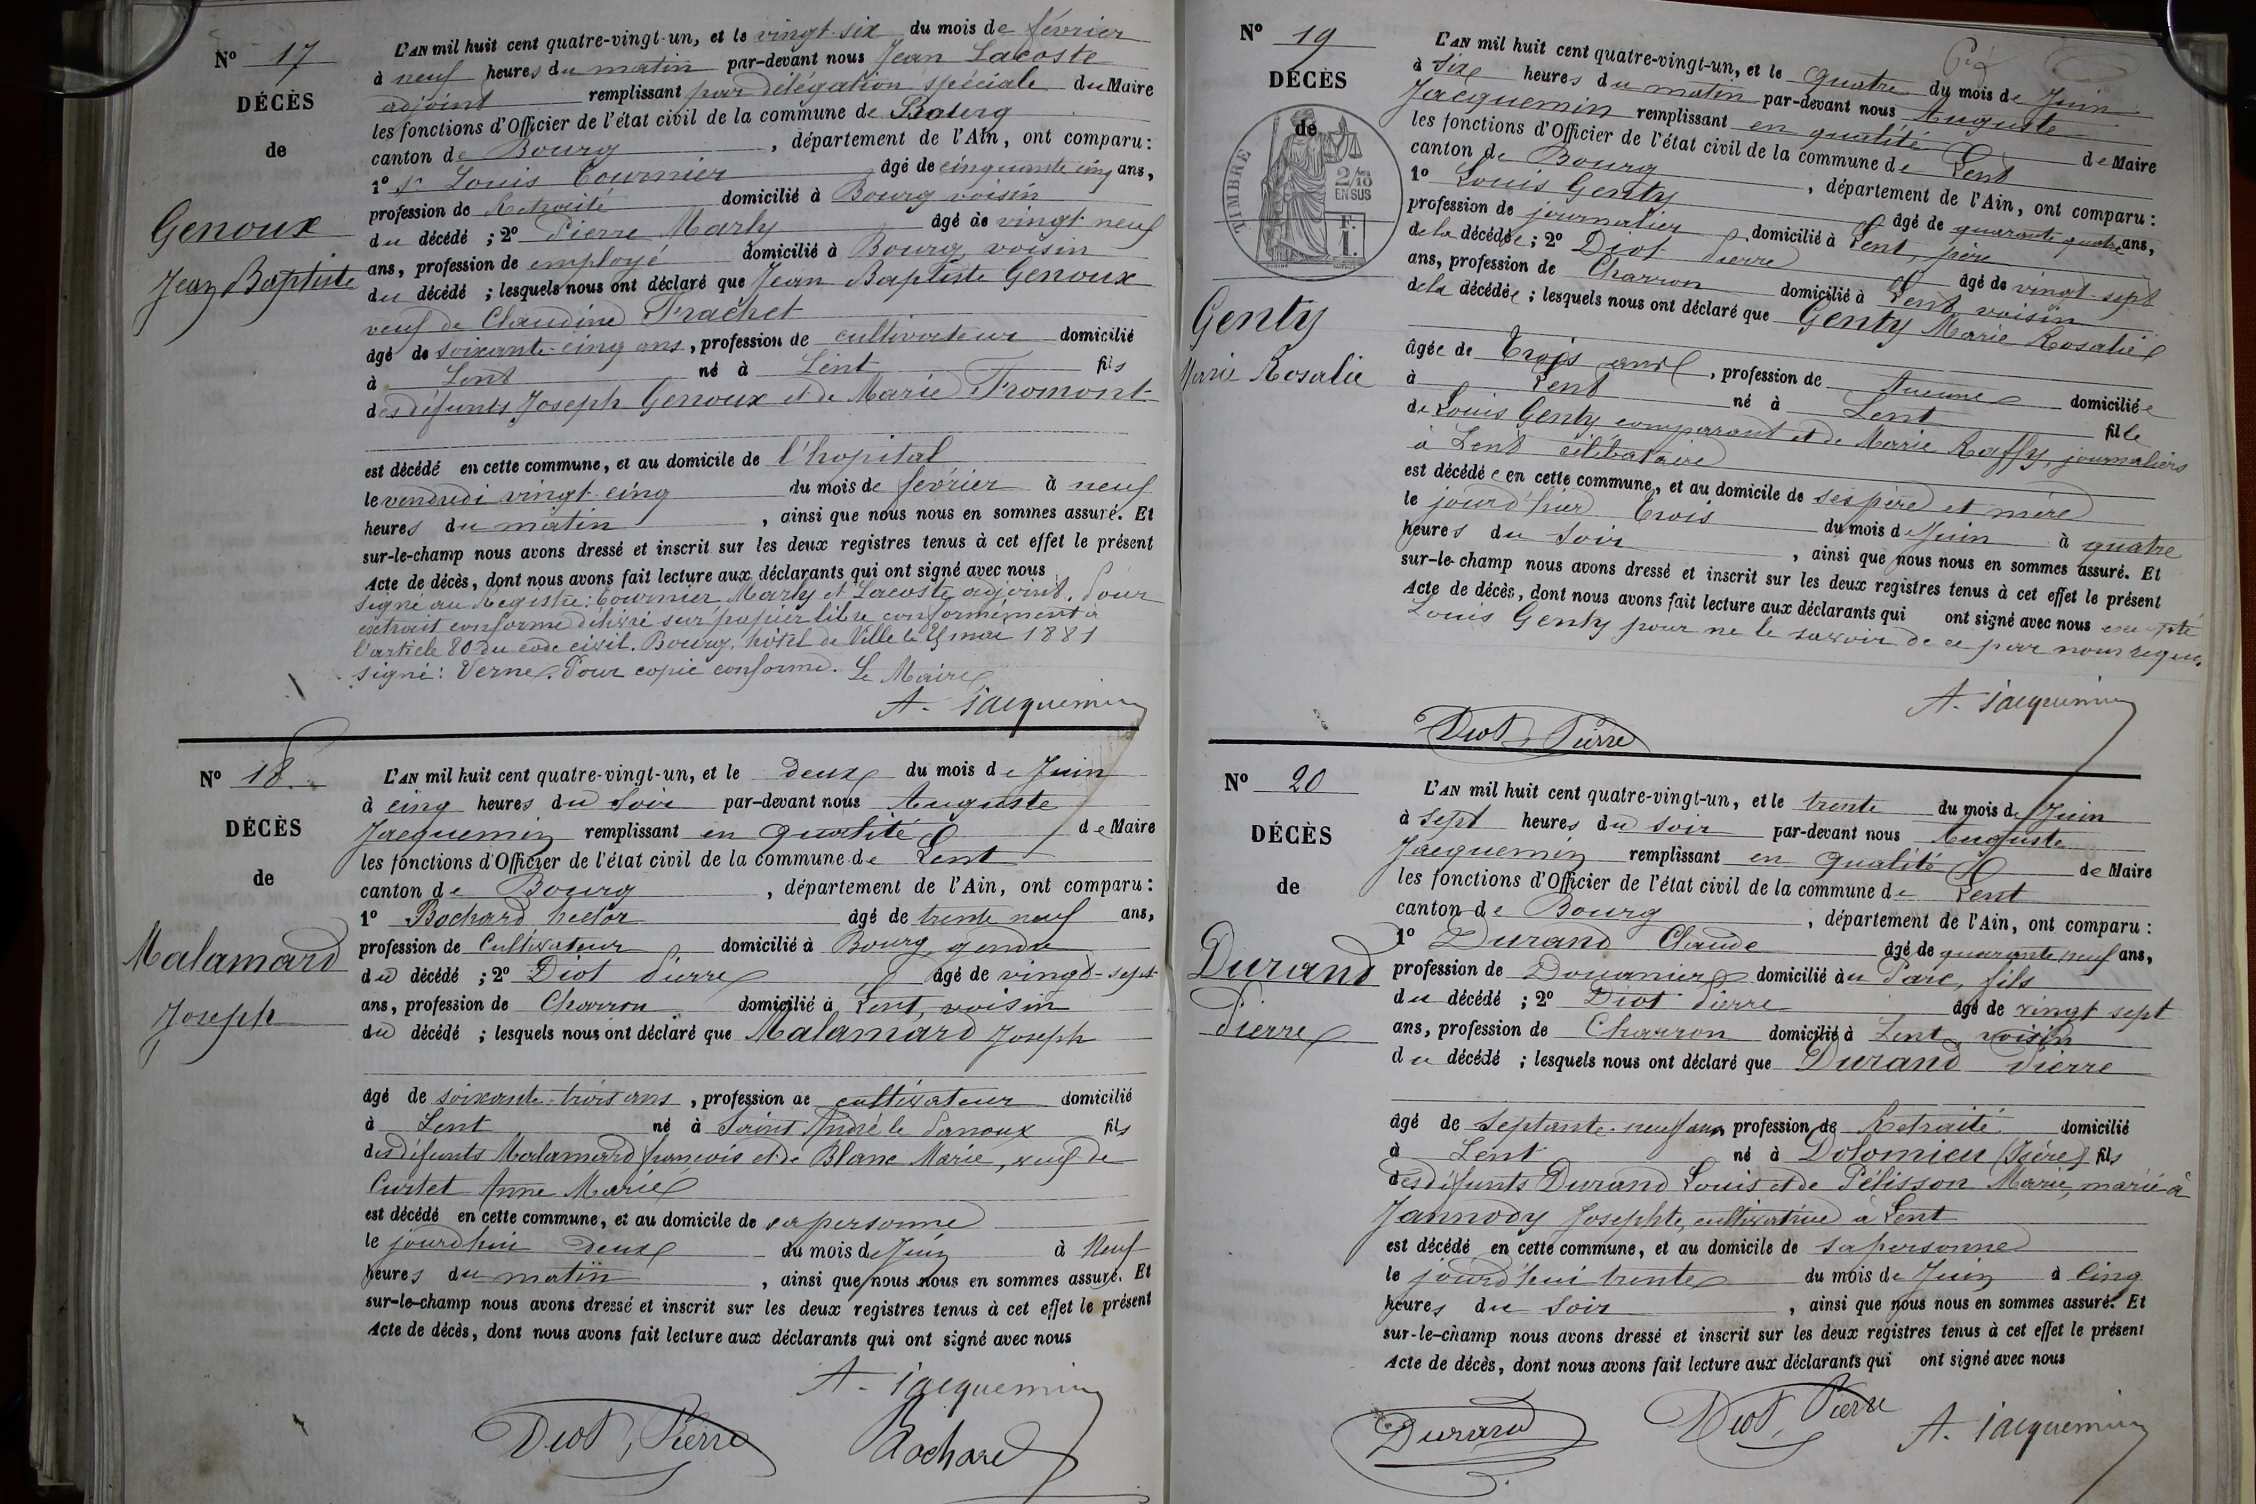 Nº 17
DÉCÈS
de
Genoux
Jean Baptiste
L'AN mil huit cent quatre-vingt-un, et le vingt-six du mois de février
à neuf heures du matin par-devant nous Jean Lacoste
adjoint remplissant par délégation spéciale du Maire
les fonctions d'Officier de l'état civil de la commune de Bourg
canton de Bourg, département de l'Ain, ont comparu:
1º Sr Louis Cournier âgé de cinquante cinq ans,
profession de Retraité domicilié à Bourg voisin
du décédé ; 2º Pierre Marly âgé de vingt neuf
ans, profession de employé domicilié à Bourg, voisin
du décédé ; lesquels nous ont déclaré que Jean Baptiste Genoux
veuf de Claudine Frachet
âgé de soixante-cinq ans, profession de cultivateur domicilié
à Lent né à Lent fils
des défunts Joseph Genoux et de Marie Fromont
est décédé en cette commune, et au domicile de l'hopital
le vendredi vingt-cinq du mois de février à neuf
heures du matin, ainsi que nous nous en sommes assuré. Et
sur-le-champ nous avons dressé et inscrit sur les deux registres tenus à cet effet le présent
Acte de décès, dont nous avons fait lecture aux déclarants qui ont signé avec nous
signé au Registre: Cournier Marly et Lacoste adjoint. Pour
extrait conforme délivré sur papier libre conformément à
l'article 80 du code civil. Bourg, hôtel de Ville le mai 1881
signé: Verne. Pour copie conforme. Le Maire
A. Jacquemin
Nº 18
DÉCÈS
de
Malamard
Joseph
L'AN mil huit cent quatre-vingt-un, et le deux du mois de Juin
à cinq heures du soir par-devant nous Auguste
Jacquemin remplissant en qualité de Maire
les fonctions d'Officier de l'état civil de la commune de Lent
canton de Bourg, département de l'Ain, ont comparu:
1º Bochard hector âgé de trente neuf ans,
profession de Cultivateur domicilié à Bourg, gendre
du décédé ; 2º Diot Pierre âgé de vingt-sept
ans, profession de Charron domicilié à Lent, voisin
du décédé ; lesquels nous ont déclaré que Malamard Joseph
âgé de soixante-trois ans, profession de cultivateur domicilié
à Lent né à Saint André le Panoux fils
des défunts Malamard françois et de Blanc Marie, veuf de
Curtet Anne Marie
est décédé en cette commune, et au domicile de sa personne
le jourd'hui deux du mois de Juin à Neuf
heures du matin, ainsi que nous nous en sommes assuré. Et
sur-le-champ nous avons dressé et inscrit sur les deux registres tenus à cet effet le présent
Acte de décès, dont nous avons fait lecture aux déclarants qui ont signé avec nous
A. Jacquemin
Diot, Pierre
Bochard
Nº 19
DÉCÈS
de
TIMBRE
2/10
EN SUS
F.
1.
Genty
Marie Rosalie
L'AN mil huit cent quatre-vingt-un, et le quatre du mois de Juin
à six heures du matin par-devant nous Auguste
Jacquemin remplissant en qualité de Maire
les fonctions d'Officier de l'état civil de la commune de Lent
canton de Bourg, département de l'Ain, ont comparu:
1º Louis Genty âgé de quarante quatre ans,
profession de journalier domicilié à Lent, père
de la décédée ; 2º Diot Pierre âgé de vingt-sept
ans, profession de Charron domicilié à Lent, voisin
de la décédée ; lesquels nous ont déclaré que Genty Marie Rosalie
âgée de Trois ans, profession de Aucune domiciliée
à Lent né à Lent fille
de Louis Genty comparant et de Marie Raffy, journaliers
à Lent célibataire
est décédée en cette commune, et au domicile de ses père et mère
le jourd'hier trois du mois de Juin à quatre
heures du soir, ainsi que nous nous en sommes assuré. Et
sur-le-champ nous avons dressé et inscrit sur les deux registres tenus à cet effet le présent
Acte de décès, dont nous avons fait lecture aux déclarants qui ont signé avec nous excepté
Louis Genty pour ne le savoir de ce par nous requis
A. Jacquemin
Diot, Pierre
Nº 20
DÉCÈS
de
Durand
Pierre
L'AN mil huit cent quatre-vingt-un, et le trente du mois de Juin
à sept heures du soir par-devant nous Auguste
Jacquemin remplissant en qualité de Maire
les fonctions d'Officier de l'état civil de la commune de Lent
canton de Bourg, département de l'Ain, ont comparu:
1º Durand Claude âgé de quarante neuf ans,
profession de Douanier domicilié au Parc, fils
du décédé ; 2º Diot Pierre âgé de vingt sept
ans, profession de Charron domicilié à Lent voisin
du décédé ; lesquels nous ont déclaré que Durand Pierre
âgé de septante-neuf ans profession de Retraité domicilié
à Lent né à Dolomieu (Isère) fils
des défunts Durand Louis et de Pélisson Marie, marié à
Jannody Josephte, cultivatrice à Lent
est décédé en cette commune, et au domicile de sa personne
le jourd'hui trente du mois de Juin à Cinq
heures du soir, ainsi que nous nous en sommes assuré. Et
sur-le-champ nous avons dressé et inscrit sur les deux registres tenus à cet effet le présent
Acte de décès, dont nous avons fait lecture aux déclarants qui ont signé avec nous
Durand
Diot, Pierre
A. Jacquemin